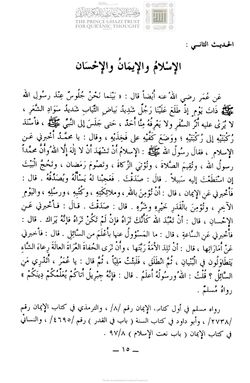 THE PRINCE GHAZI TRUST
FOR QUR'ANIC THOUGHT
الحديث الثاني :
الإسلامُ والإيمَانُ والإحْسَان
عَن عُمَرَ رضي اللهُ عنه أيضاً قال : « بَيْنَما نَحْنُ جُلُوسٌ عِنْدَ رسُولِ الله
ﷺ ذَاتَ يَوْمٍ إِذْ طَلَعَ عَلَيْنَا رَجُلٌ شَدِيدُ بَيَاضِ الثِّيَابِ شَدِيدُ سَوَادِ الشَّعَرِ ،
لا يُرَى عَلَيْهِ أَثَرُ السَّفَرِ ولا يَعْرِفُهُ مِنَّا أَحَدٌ ، حتى جَلَسَ إلى النَّبِيِّ ﷺ ، فَأَسْنَدَ
رُكْبَتَيْهِ إلى رُكْبَتَيْهِ ؛ ووَضَعَ كَفَّيْهِ على فَخِذَيْهِ ، وقال : يا محمَّدُ أَخْبِرني عَنِ
الإسلام ، فقال رسول الله ﷺ : الإسلامُ أَنْ تَشْهَدَ أَنْ لا إلَهَ إلَّا اللهُ وأنَّ محمَّداً
رسول الله ، وتُقِيمَ الصَّلاةَ ، وتُؤْتِيَ الزَّكاةَ ، وتَصُومَ رَمَضان ، وتَحُجَّ الْبَيْتَ
إنِ اسْتَطَعْتَ إليه سبيلاً . قال : صَدَقْتَ . فَعَجِبْنا لهُ يَسْأَلُهُ ويُصَدِّقُهُ . قال :
فأخْبِرني عَنِ الإيمَانِ . قال : أنْ تُؤْمِنَ باللهِ ، وملائِكَتِهِ ، وكُتُبِهِ ، ورسُلِهِ ، واليومِ
الآخِرِ ، وتُؤْمِنَ بالْقَدَرِ خَيْرِهِ وشَرِّهِ . قال : صَدَقْتَ . قال : فأخبِرني عَنِ
الإحْسَانِ . قال : أَنْ تَعْبُدَ اللهَ كأنَّكَ تَرَاهُ فإنْ لَمْ تَكُنْ تَرَاهُ فإنَّهُ يَرَاكَ . قال :
فأخْبِرني عَنِ السَّاعَةِ ، قال : ما المسؤولُ عنها بأعْلَمَ من السَّائِلِ . قال : فأخْبِرني
عَنْ أمَارَاتِهَا ، قال : أنْ تَلِدَ الأمَةُ رَبَّتَها ، وأنْ تَرَى الحُفَاةَ العُرَاةَ العَالَةَ رِعَاءَ الشَّاءِ
يَتَطَاوَلُونَ في الْبُنْيَانِ ، ثُمَّ انْطَلَقَ ، فَلَبِثْتُ مَلِيًّا ، ثُمَّ قال : يا عُمَرُ ، أَتَدْرِي مَنِ
السَّائِلُ ؟ قُلْتُ : اللهُ ورسُولُهُ أعْلَمُ . قال : فَإنَّهُ جِبْرِيلُ أَتَاكُمْ يُعَلِّمُكُمْ دِينَكُمْ »
رواه مسلم .
رواه مسلم في أول كتاب الإيمان رقم /٨/ ، والترمذي في كتاب الإيمان رقم
/٢٧٣٨/ ، وأبو داود في كتاب السنة ( باب في القدر ) رقم /٤٦٩٥/ ، والنسائي
في كتاب الإيمان ( باب نعت الإسلام ) ٩٧/٨ .
ـ ١٥ ـ